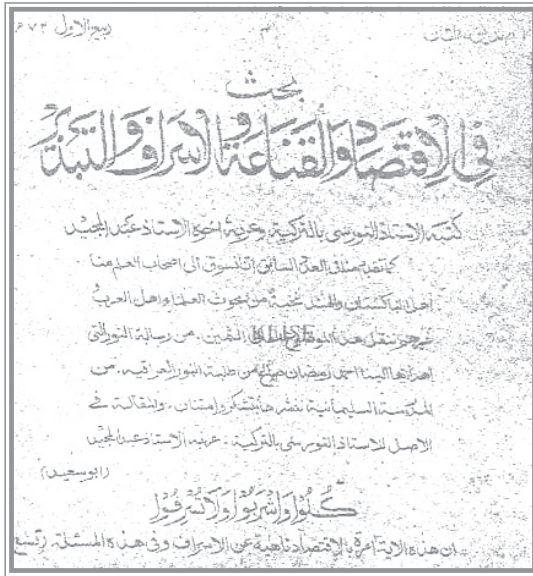 ربيع الاول ٧٣
٣
بحث
في الاقتصاد والقناعة والاسراف والتبذير
كتبه الاستاذ النورسي بالتركية وعربه اخوه الاستاذ عبد المجيد
كما تقدم منا في العدد السابق ان نسوق الى اصحاب العلم منا
اهل الباكستان والهند نخبة من بحوث العلماء اهل العرب و
غيرهم ننقل هذا الثمين . من رسالة النور التي
اهداها الينا احمد رمضان من طلبة النور العراقيه . من
المدرسة السليمانية ننشرها بتشكر وامتنان . والمقالة في
الاصل للاستاذ النورسي بالتركية . عربه الاستاذ عبد المجيد
(ابو سعيد)
كُلُوا وَاشْرَبُوا وَلَا تُسْرِفُوا
ان هذه الاية آمرة بالاقتصاد ناهية عن الاسراف وفي هذه المسئلة